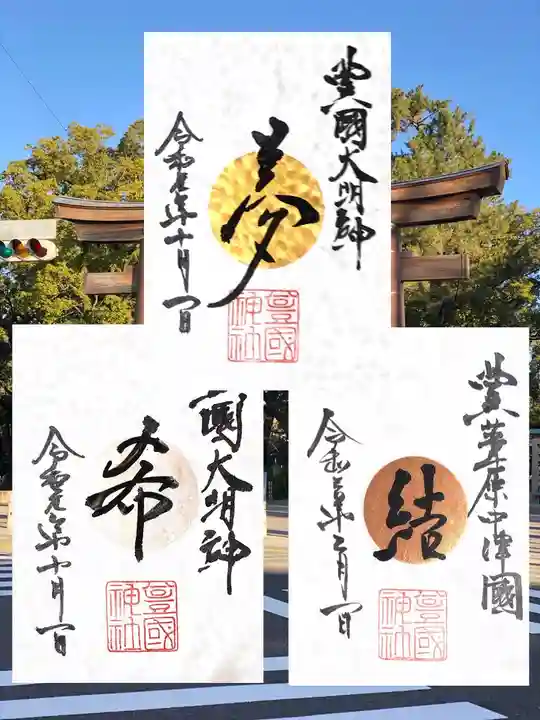 豊國大明神
夢
令和元年十月一日
豊國
神社
國大明神
希
令和元年十月一日
豊國
神社
豊葦原中津國
結
令和三年三月一日
豊國
神社